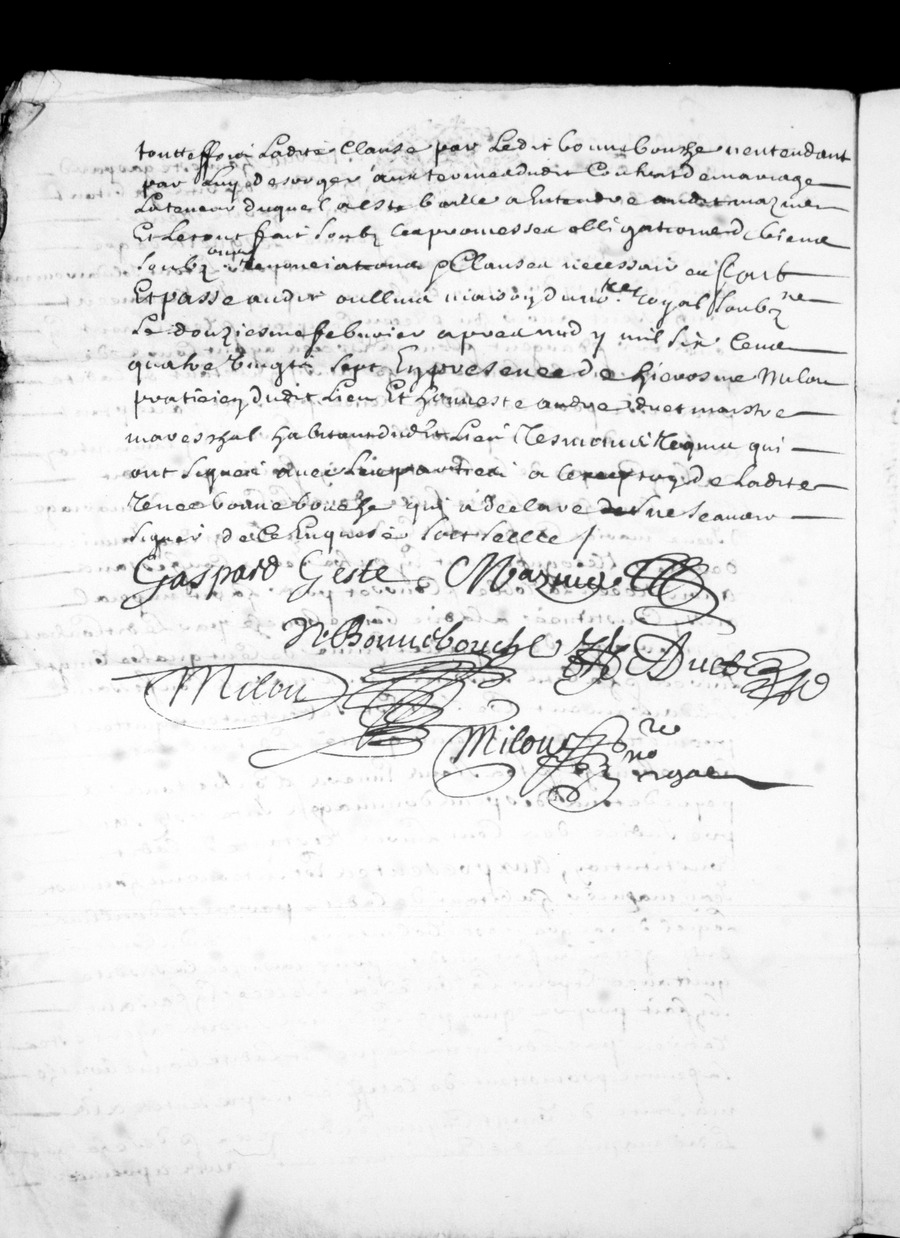 touttesfois Ladite Clause par Ledit bonnebouche nentendant
par luy desroger aux termes dudit Contract de mariage
La teneur duquel a este baille a Entendre audit mazuier
Et Le tout fait soubz les promesses obligations de biens
soubz renonciations & Clauses necessaires fait
Et passe audit oullins maison du no.re Royal soubz.ne
Le douziesme febvrier apres midy mil six Cens
quatre vingts sept En presence de hierosme Milou
praticien dudit Lieu Et honneste andre duet maistre
mareschal habitant dudit Lieu tesmoins Requis qui
ont signes avec Les parties a La de Ladite
Renee bonnebouche qui a declare ne scavoir
signer de ce Enquese soit seelle /
Gaspard Geste Mazuier
N Bonnebouche A Duet
Milou
Milou no.re
royal